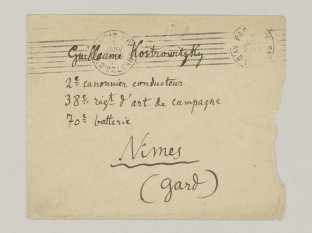 Guillaume Kostrowitzky
2e canonnier conducteur
38e régt d'art. de campagne
70e batterie
Nîmes
(Gard)